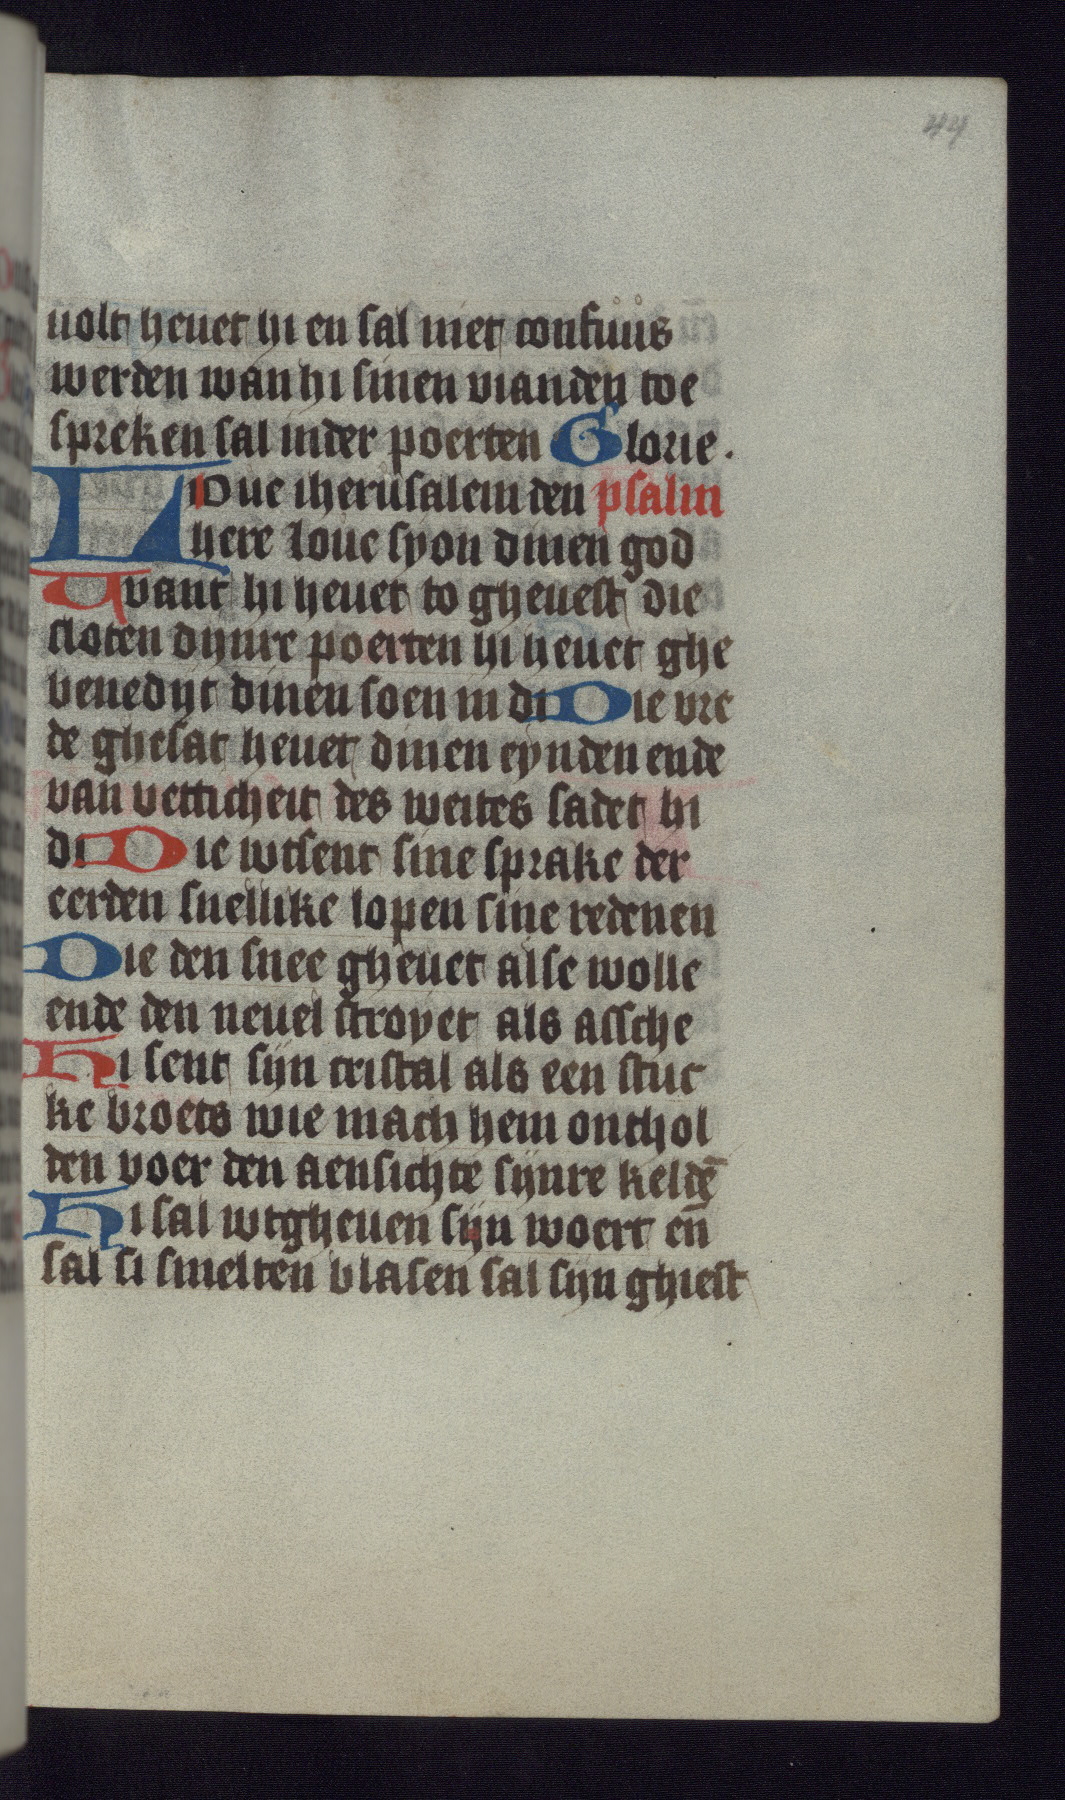 44
uolt heuet hi en sal niet confuus
werden wan hi sinen vianden toe
spreken sal inder poerten Glorie.
Loue iherusalem den psalm
here loue syon dinen god
Want hi heuet to gheuest die
sloten dynre poerten hi heuet ghe
benedijt dinen soen in di Die vre
de ghesat heuet dinen eynden ende
van vetticheit des weites sadet hi
di Die wtsent sine sprake der
eerden snellike lopen sine redenen
Die den snee gheuet alse wolle
ende den neuel stroyet als assche
Hi sent sijn cristal als een stuc
ke broets wie mach hem onthol
den voer den aensichte sijnre keldē
Hi sal wtgheuen sijn woert eñ
sal si smelten blasen sal sijn ghiest